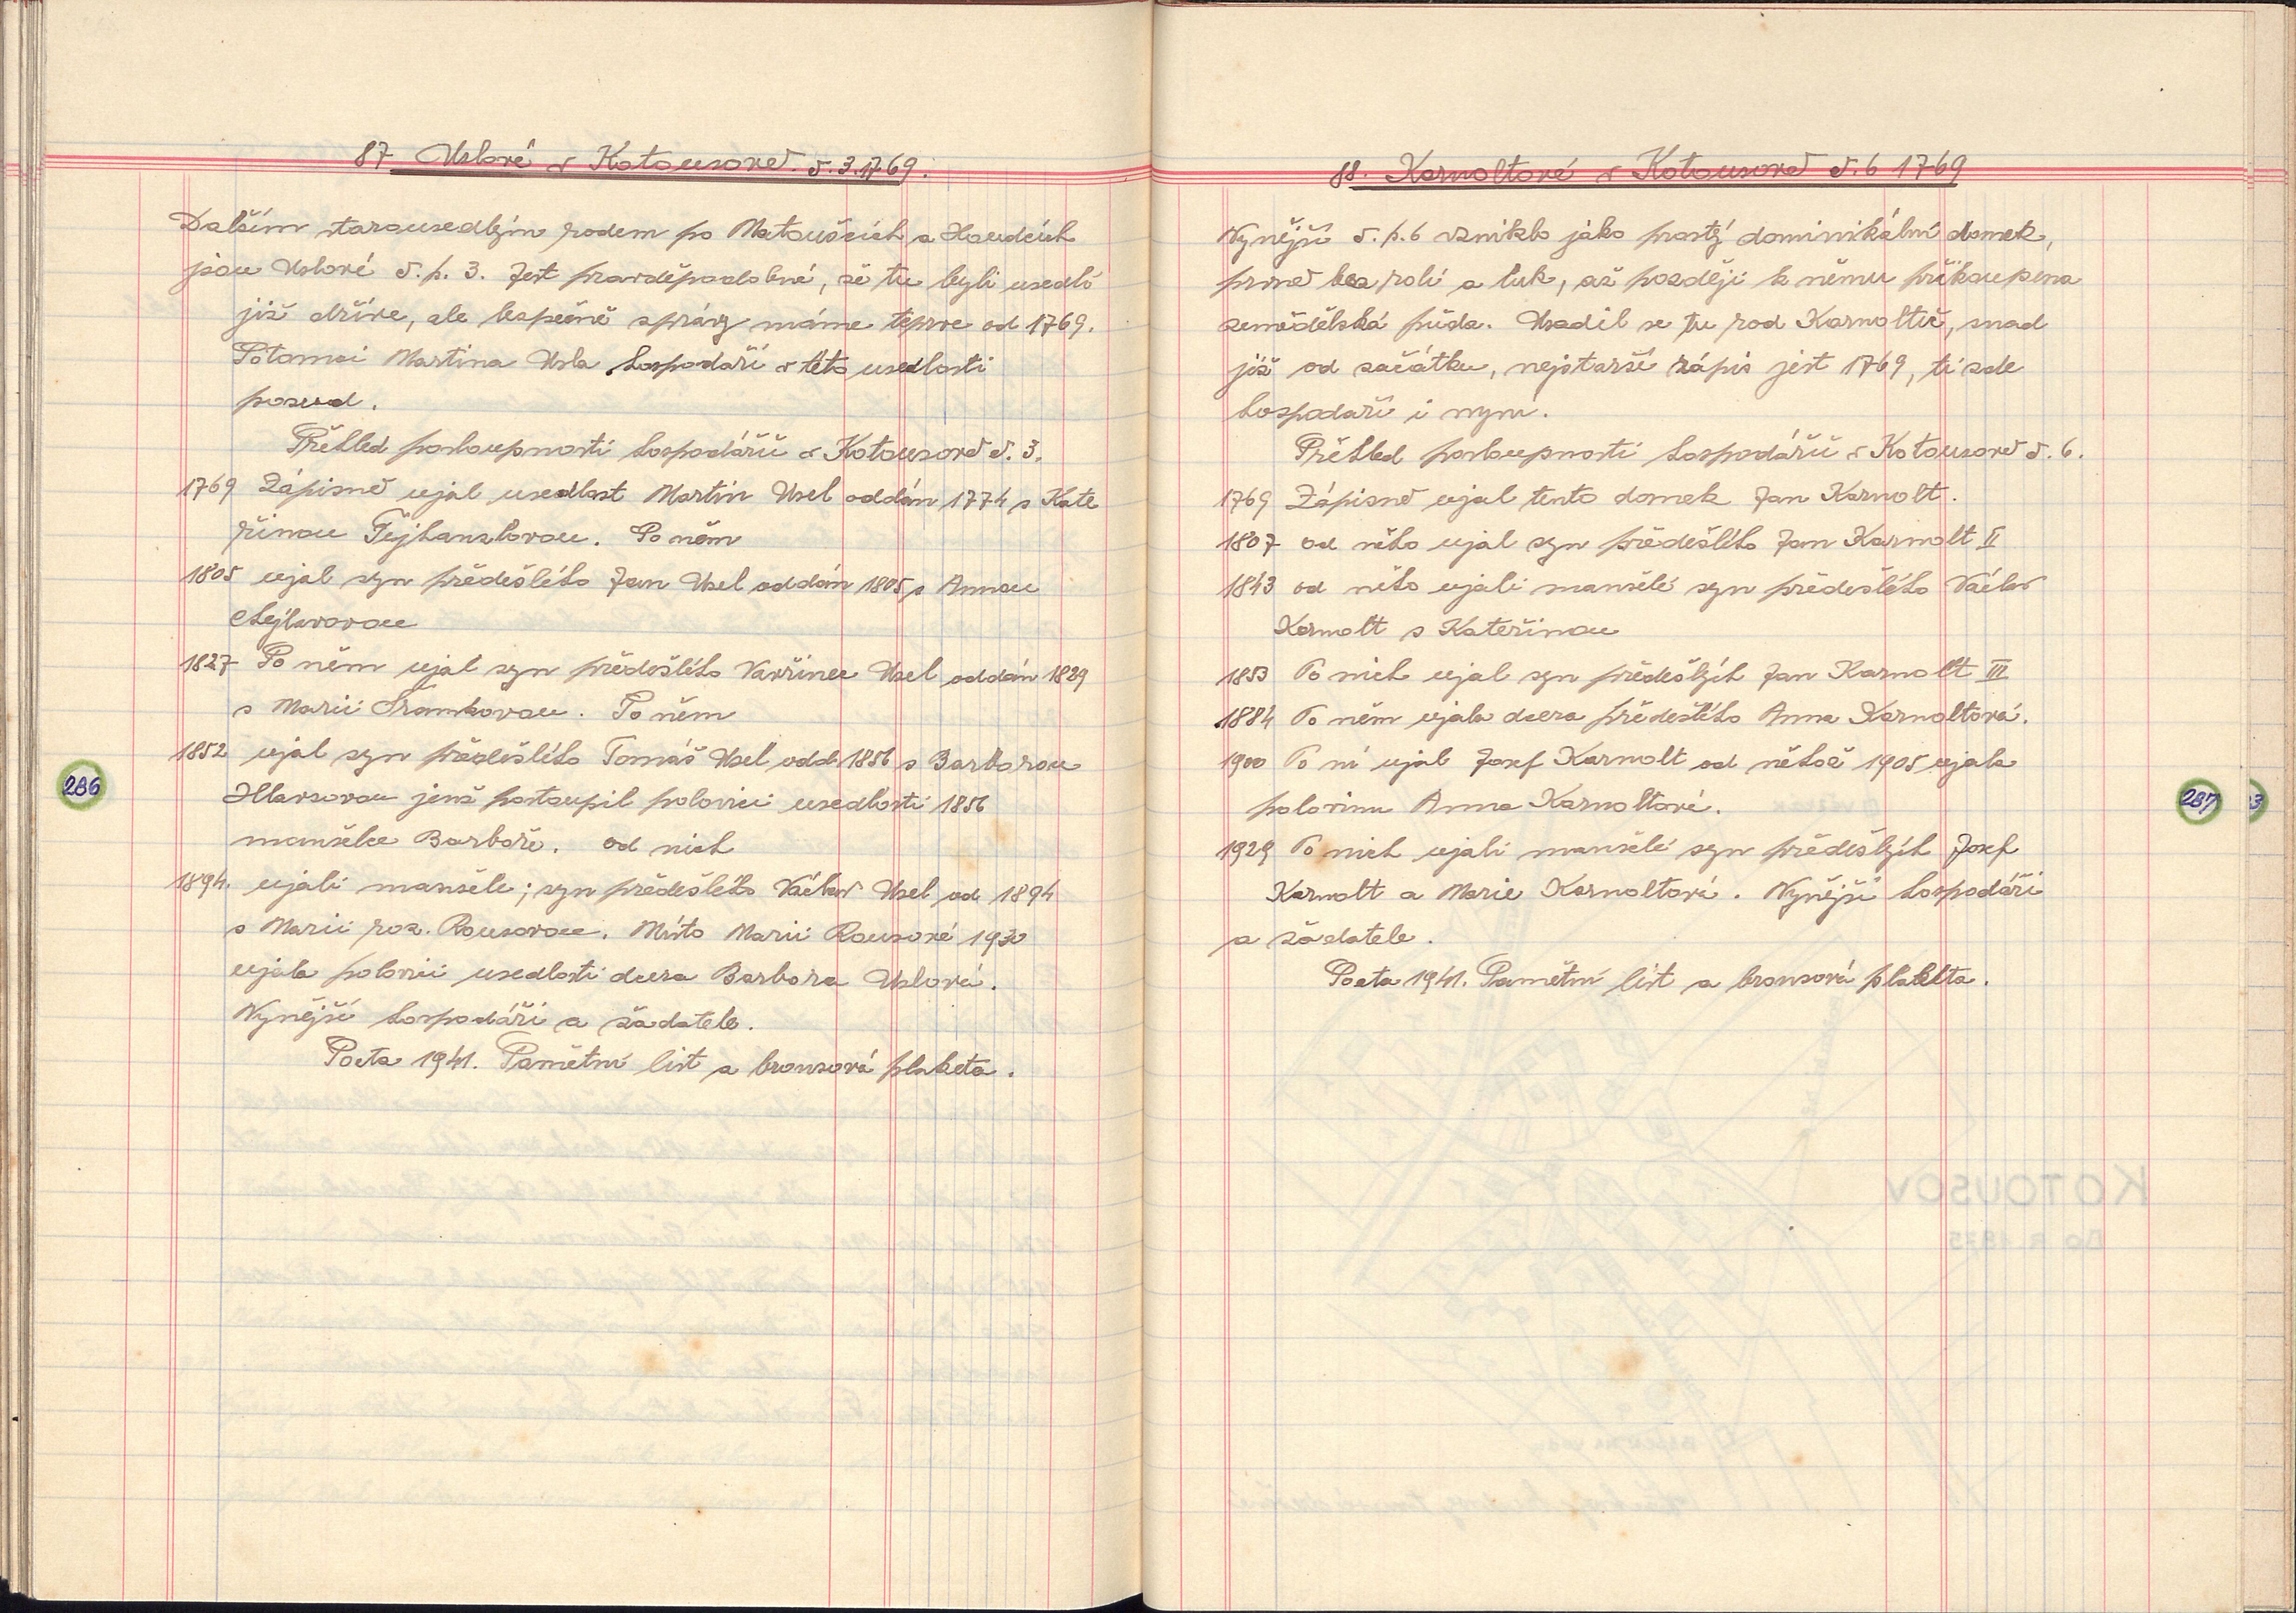 87 Uslové v Kotousově č. 3. 1769.
Dalším starousedlým rodem po Matoušcích a Houdcích
jsou Uslové č. p. 3. Jest pravděpodobné, že tu byli usedlí
již dříve, ale bezpečné zprávy máme teprve od 1769.
Potomci Martina Usla hospodaří v této usedlosti
posud.
Přehled posloupnosti hospodářů v Kotousově č. 3.
1769 Zápisně ujal usedlost Martin Usel oddán 1774 s Kate
řinou Tejhanzlovou. Po něm
1805 ujal syn předešlého Jan Usel oddán 1805 s Annou
Chejlavovou
1827 Po něm ujal syn předešlého Vavřinec Usel oddán 1829
s Marií Šramkovou. Po něm
1852 ujal syn předešlého Tomáš Usel odd. 1856 s Barborou
Hlavsovou jenž postoupil polovici usedlosti 1856
manželce Barboře. od nich
1894. ujali manžele; syn předešlého Václav Usel od 1894
s Marií roz. Rousovou. Místo Marii Rousové 1930
ujala polovici usedlosti dcera Barbora Uslová.
Nynější hospodáři a žadatelé.
Pocta 1941. Pamětní list a bronzová plaketa.
286
88. Karnoltové v Kotousově č. 6 1769
Nynější č. p. 6 vzniklo jako prostý dominikální domek,
prvně bez rolí a luk, až později k němu přikoupena
zemědělská půda. Usadil se tu rod Karnoltů, snad
již od začátku, nejstarší zápis jest 1769, ti zde
hospodaří i nyní.
Přehled posloupnosti hospodářů v Kotousově č. 6.
1769 Zápisně ujal tento domek Jan Karnolt.
1807 od něho ujal syn předešlého Jan Karnolt II
1843 od něho ujali manželé syn předešlého Václav
Karnolt s Kateřinou
1853 Po nich ujal syn předešlých Jan Karnolt III
1884 Po něm ujala dcera předešlého Anna Karnoltová.
1900 Po ní ujal Josef Karnolt od něhož 1905 ujala
polovinu Anna Karnoltová.
1929 Po nich ujali manželé syn předešlých Josef
Karnolt a Marie Karnoltová. Nynější hospodáři
a žadatele.
Pocta 1941. Pamětní list a bronzová plaketta.
287